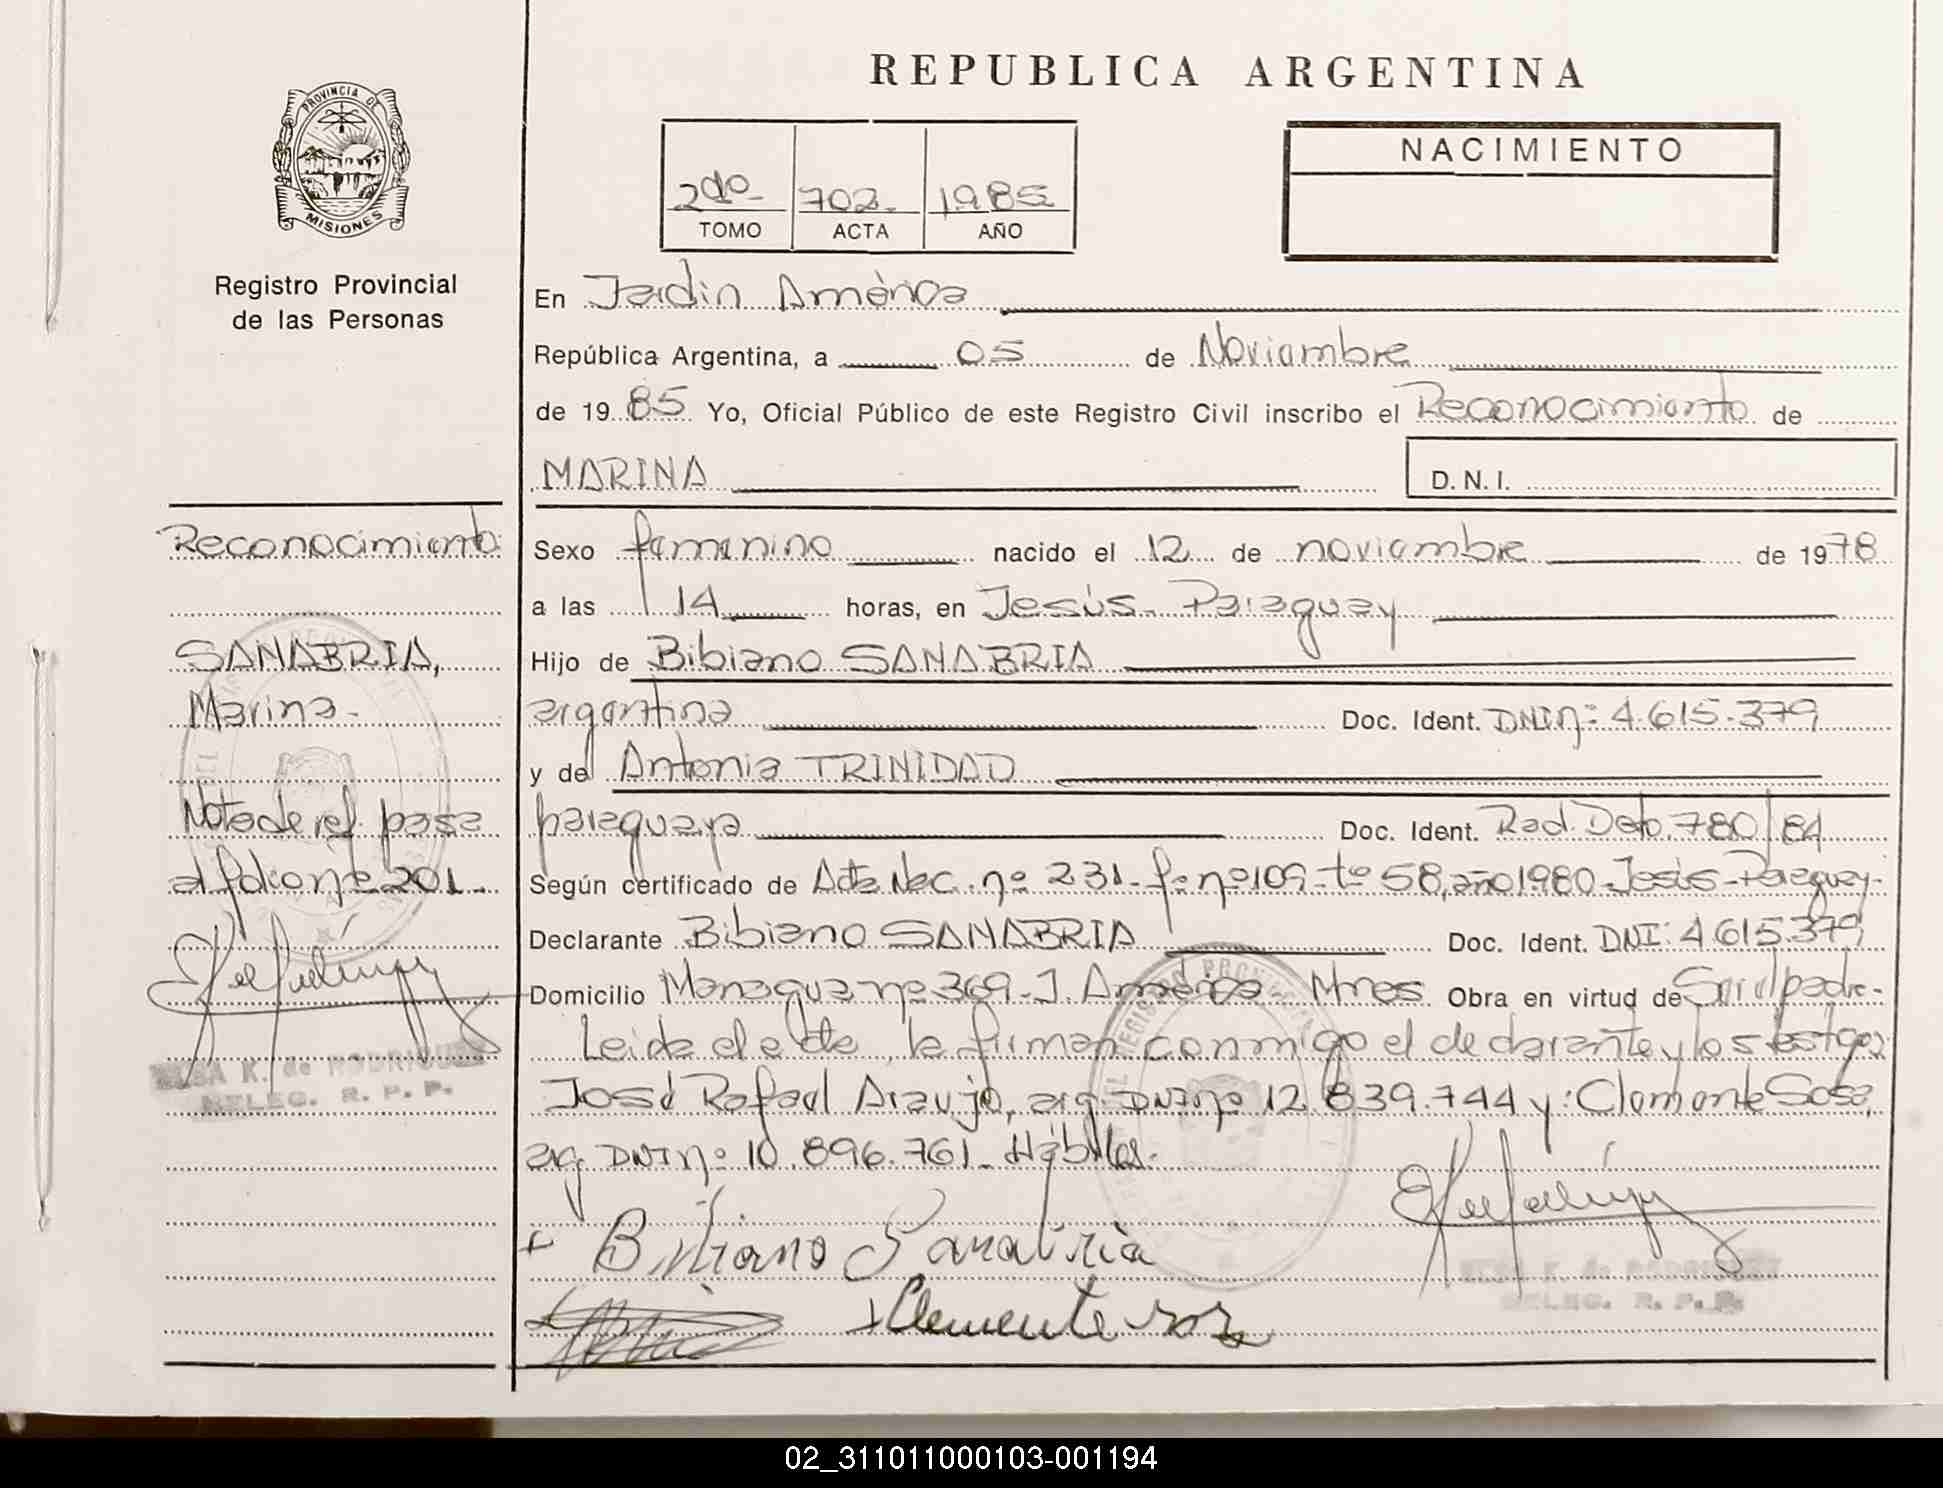 REPUBLICA ARGENTINA
PROVINCIA DE
MISIONES
Registro Provincial
de las Personas
2do- 702- 1985
TOMO ACTA AÑO
NACIMIENTO
En Jardín América
República Argentina, a 05 de Noviembre
de 1985 Yo, Oficial Público de este Registro Civil inscribo el Reconocimiento de
MARINA D.N.I.
Sexo femenino nacido el 12 de noviembre de 1978
a las 14 horas, en Jesús- Paraguay
Hijo de Bibiano SANABRIA
argentina Doc. Ident. DNI nº: 4.615.379
y de Antonia TRINIDAD
paraguaya Doc. Ident. Rad. Dcto. 780/84
Según certificado de Acta Nac. nº 231- fº nº 109- tº 58, año 1980- Jesús- Paraguay-
Declarante Bibiano SANABRIA Doc. Ident. DNI: 4.615.379
Domicilio Managua nº 369- J. América- Mnes. Obra en virtud de Ser el padre-
Leida el acta, la firman conmigo el declarante y los testigos
José Rafael Araujo, arg. DNI nº 12.839.744 y: Clemente Sosa,
arg. DNI nº 10.896.761- Hábiles.-
Bibiano Sanabria
Clemente sosa
K. de RODRIGUEZ
DELEG. R. P. P.
Reconocimiento
SANABRIA,
Marina-
Nota de ref. pasa
al folio nº 201-
K. de RODRIGUEZ
DELEG. R. P. P.
02_311011000103-001194